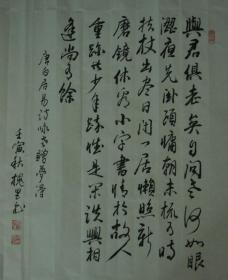 與君俱老矣自问老何如眼
澀夜先卧頭慵朝未梳有時
扶杖出尽日闭门居懶照新
磨镜休看小字書情於故人
重跡共少年疎惟是閑談興相
逢尚有餘
唐白居易詩咏老贈夢得
壬寅秋槐里